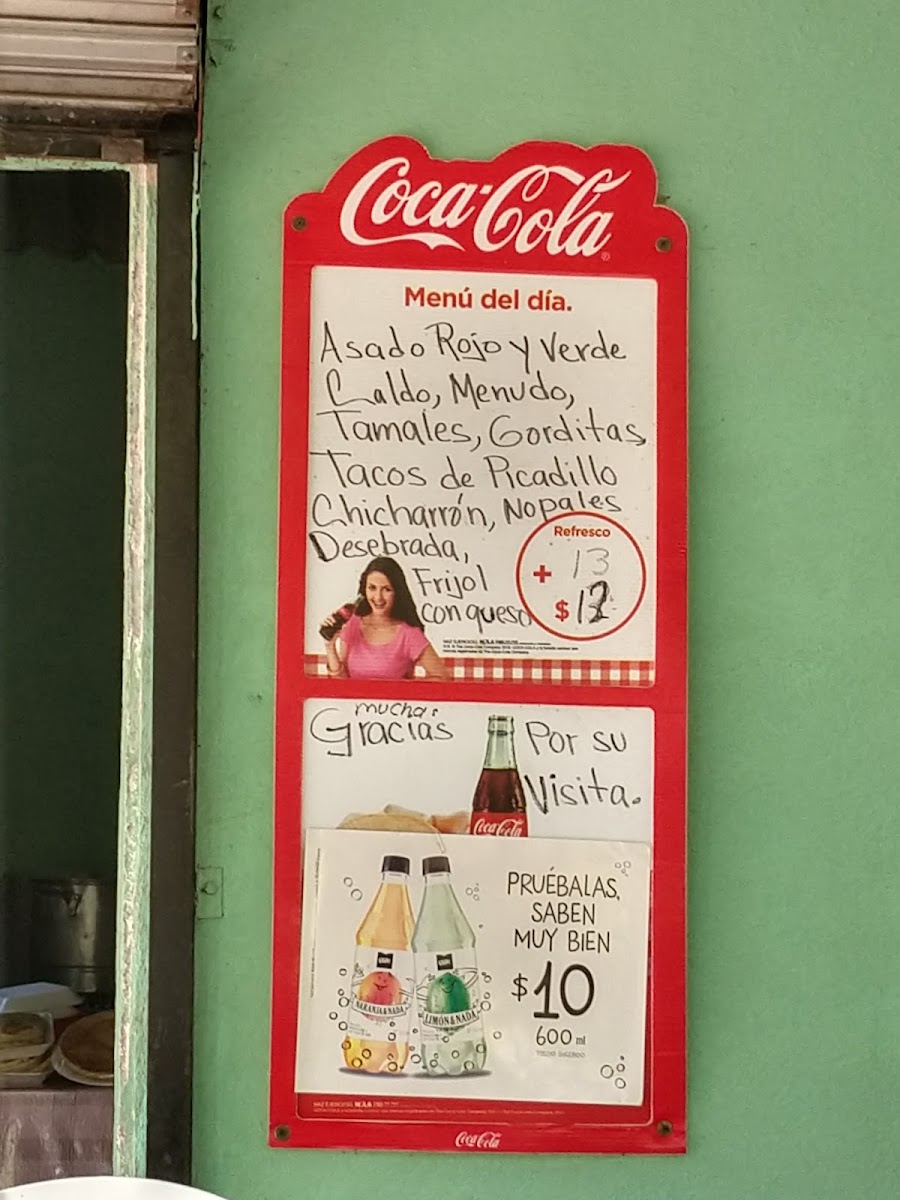 Coca-Cola
Menú del día.
Asado Rojo y Verde
Caldo, Menudo,
Tamales, Gorditas,
Tacos de Picadillo
Chicharrón, Nopales
Desebrada,
Frijol
con queso
Refresco
+ 13
$12
mucha.
Gracias
Por su
Visita.
Coca-Cola
PRUÉBALAS,
SABEN
MUY BIEN
$10
600 ml
NARANJA&NADA
LIMÓN&NADA
Coca-Cola